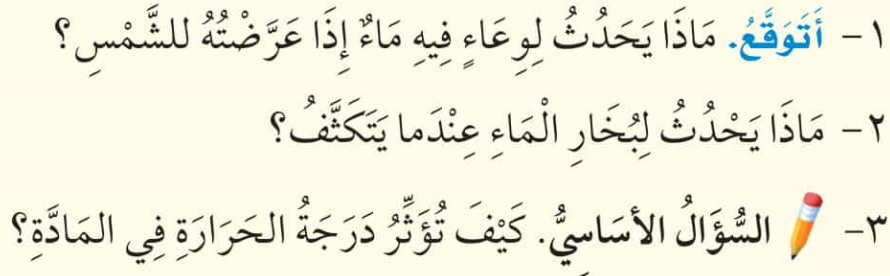 ١- أَتَوَقَّعُ. مَاذَا يَحَدُثُ لِوِعَاءٍ فِيهِ مَاءٌ إِذَا عَرَّضْتُهُ للشَّمْسِ؟
٢- مَاذَا يَحْدُثُ لِبُخَارِ الْمَاءِ عِنْدَما يَتَكَثَّفُ؟
٣- السُّؤَالُ الأسَاسِيُّ. كَيْفَ تُؤَثِّرُ دَرَجَةُ الحَرَارَةِ فِي المَادَّةِ؟